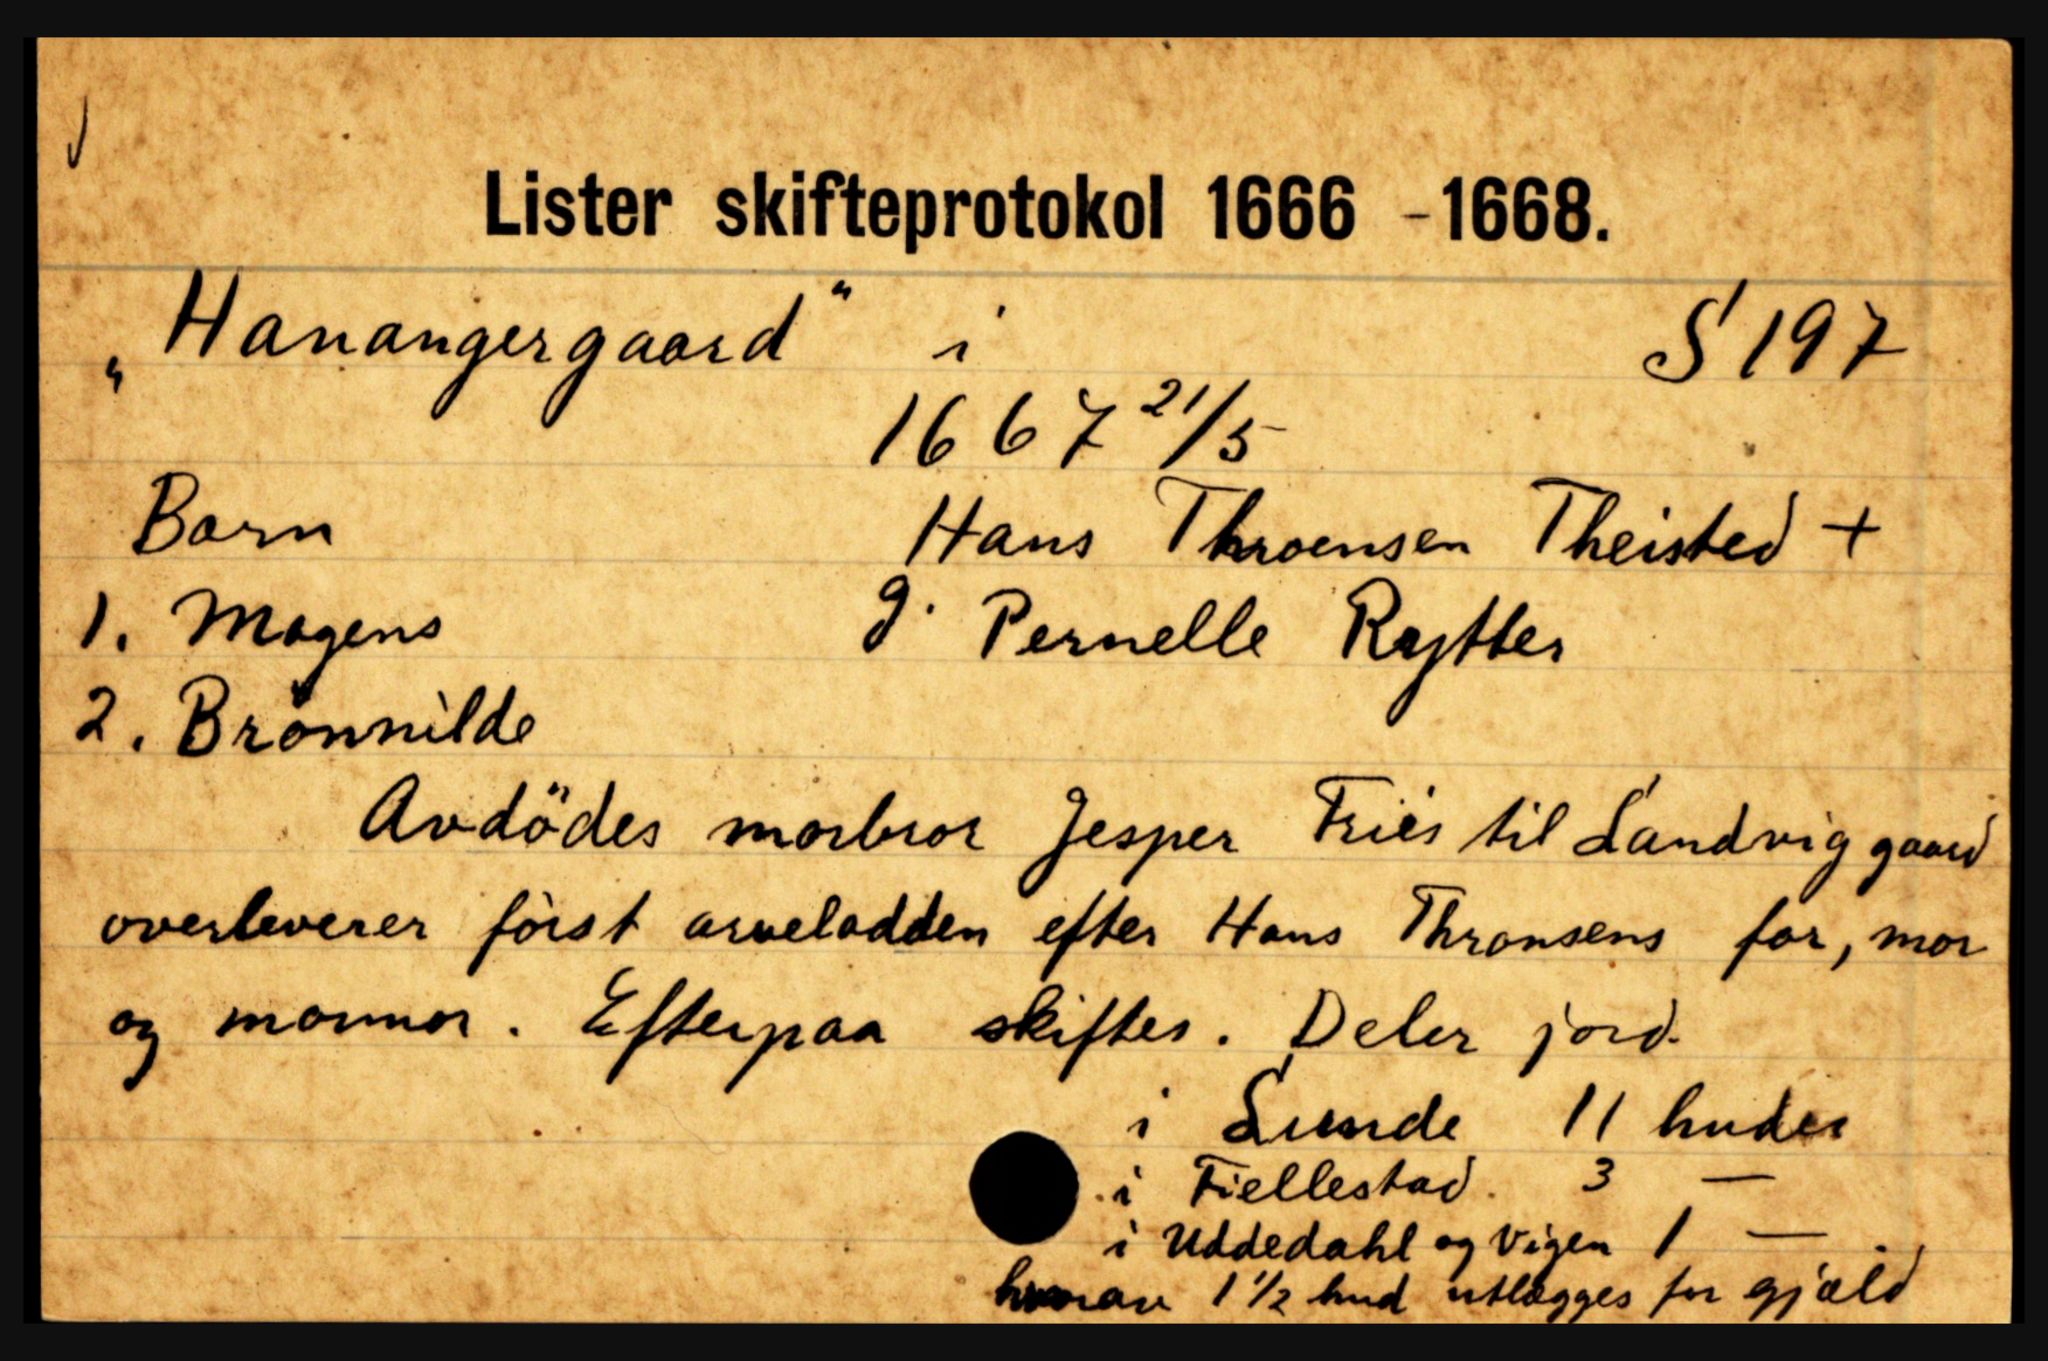 Lister skifteprotokol 1666 - 1668.
„Hanangergaard“ i S 197
1667 21/5
Barn Hans Throensen Theisted +
1. Mogens g. Pernelle Rytter
2. Bronnilde
Avdödes morbror Jesper Friis til Sandviggaard
overleverer först arvelodden efter Hans Thronsens far, mor
og mormor. Efterpaa skiftes. Deler jord.
i Lunde 11 huder
i Fiellestad. 3 —
i Uddedahl og Vigen 1 —
hvorav 1 1/2 hud utlægges for gjæld